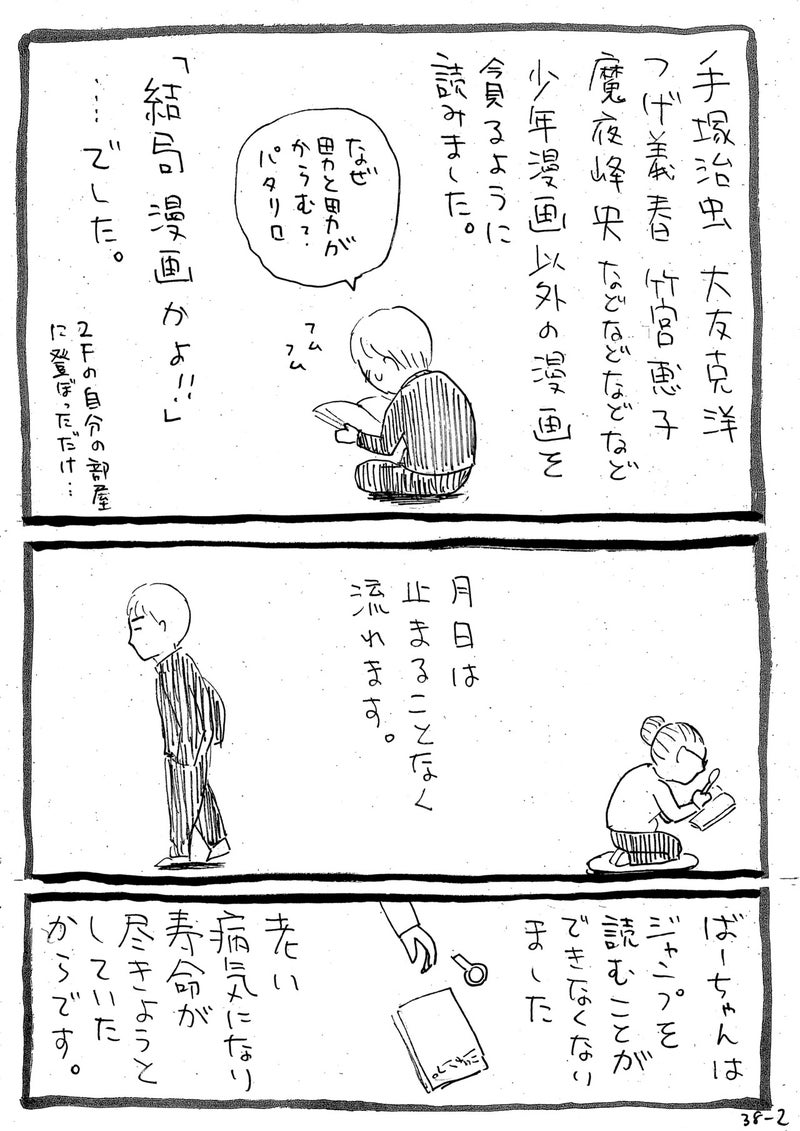 手塚治虫 大友克洋
つげ義春 竹宮恵子
魔夜峰央 などなどなどなど
少年漫画以外の漫画を
貪るように
読みました。
なぜ
男と男が
からむ?
パタリロ
フム
フム
「結局漫画かよ!!」
…でした。
2Fの自分の部屋
に登ぼっただけ…
月日は
止まることなく
流れます。
ばーちゃんは
ジャンプを
読むことが
できなくない
ました
老い
病気になり
寿命が
尽きようと
していた
からです。
38-2